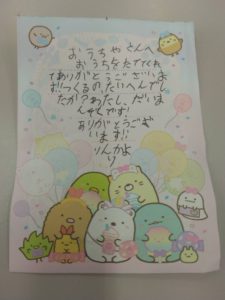 おうちやさんへ
おうちをたててくれ
てありがとうございま
す!!つくるのたいへんでし
たか?わたし、だいま
んぞくです!
ありがとうござ
います!!
りんかよ
り